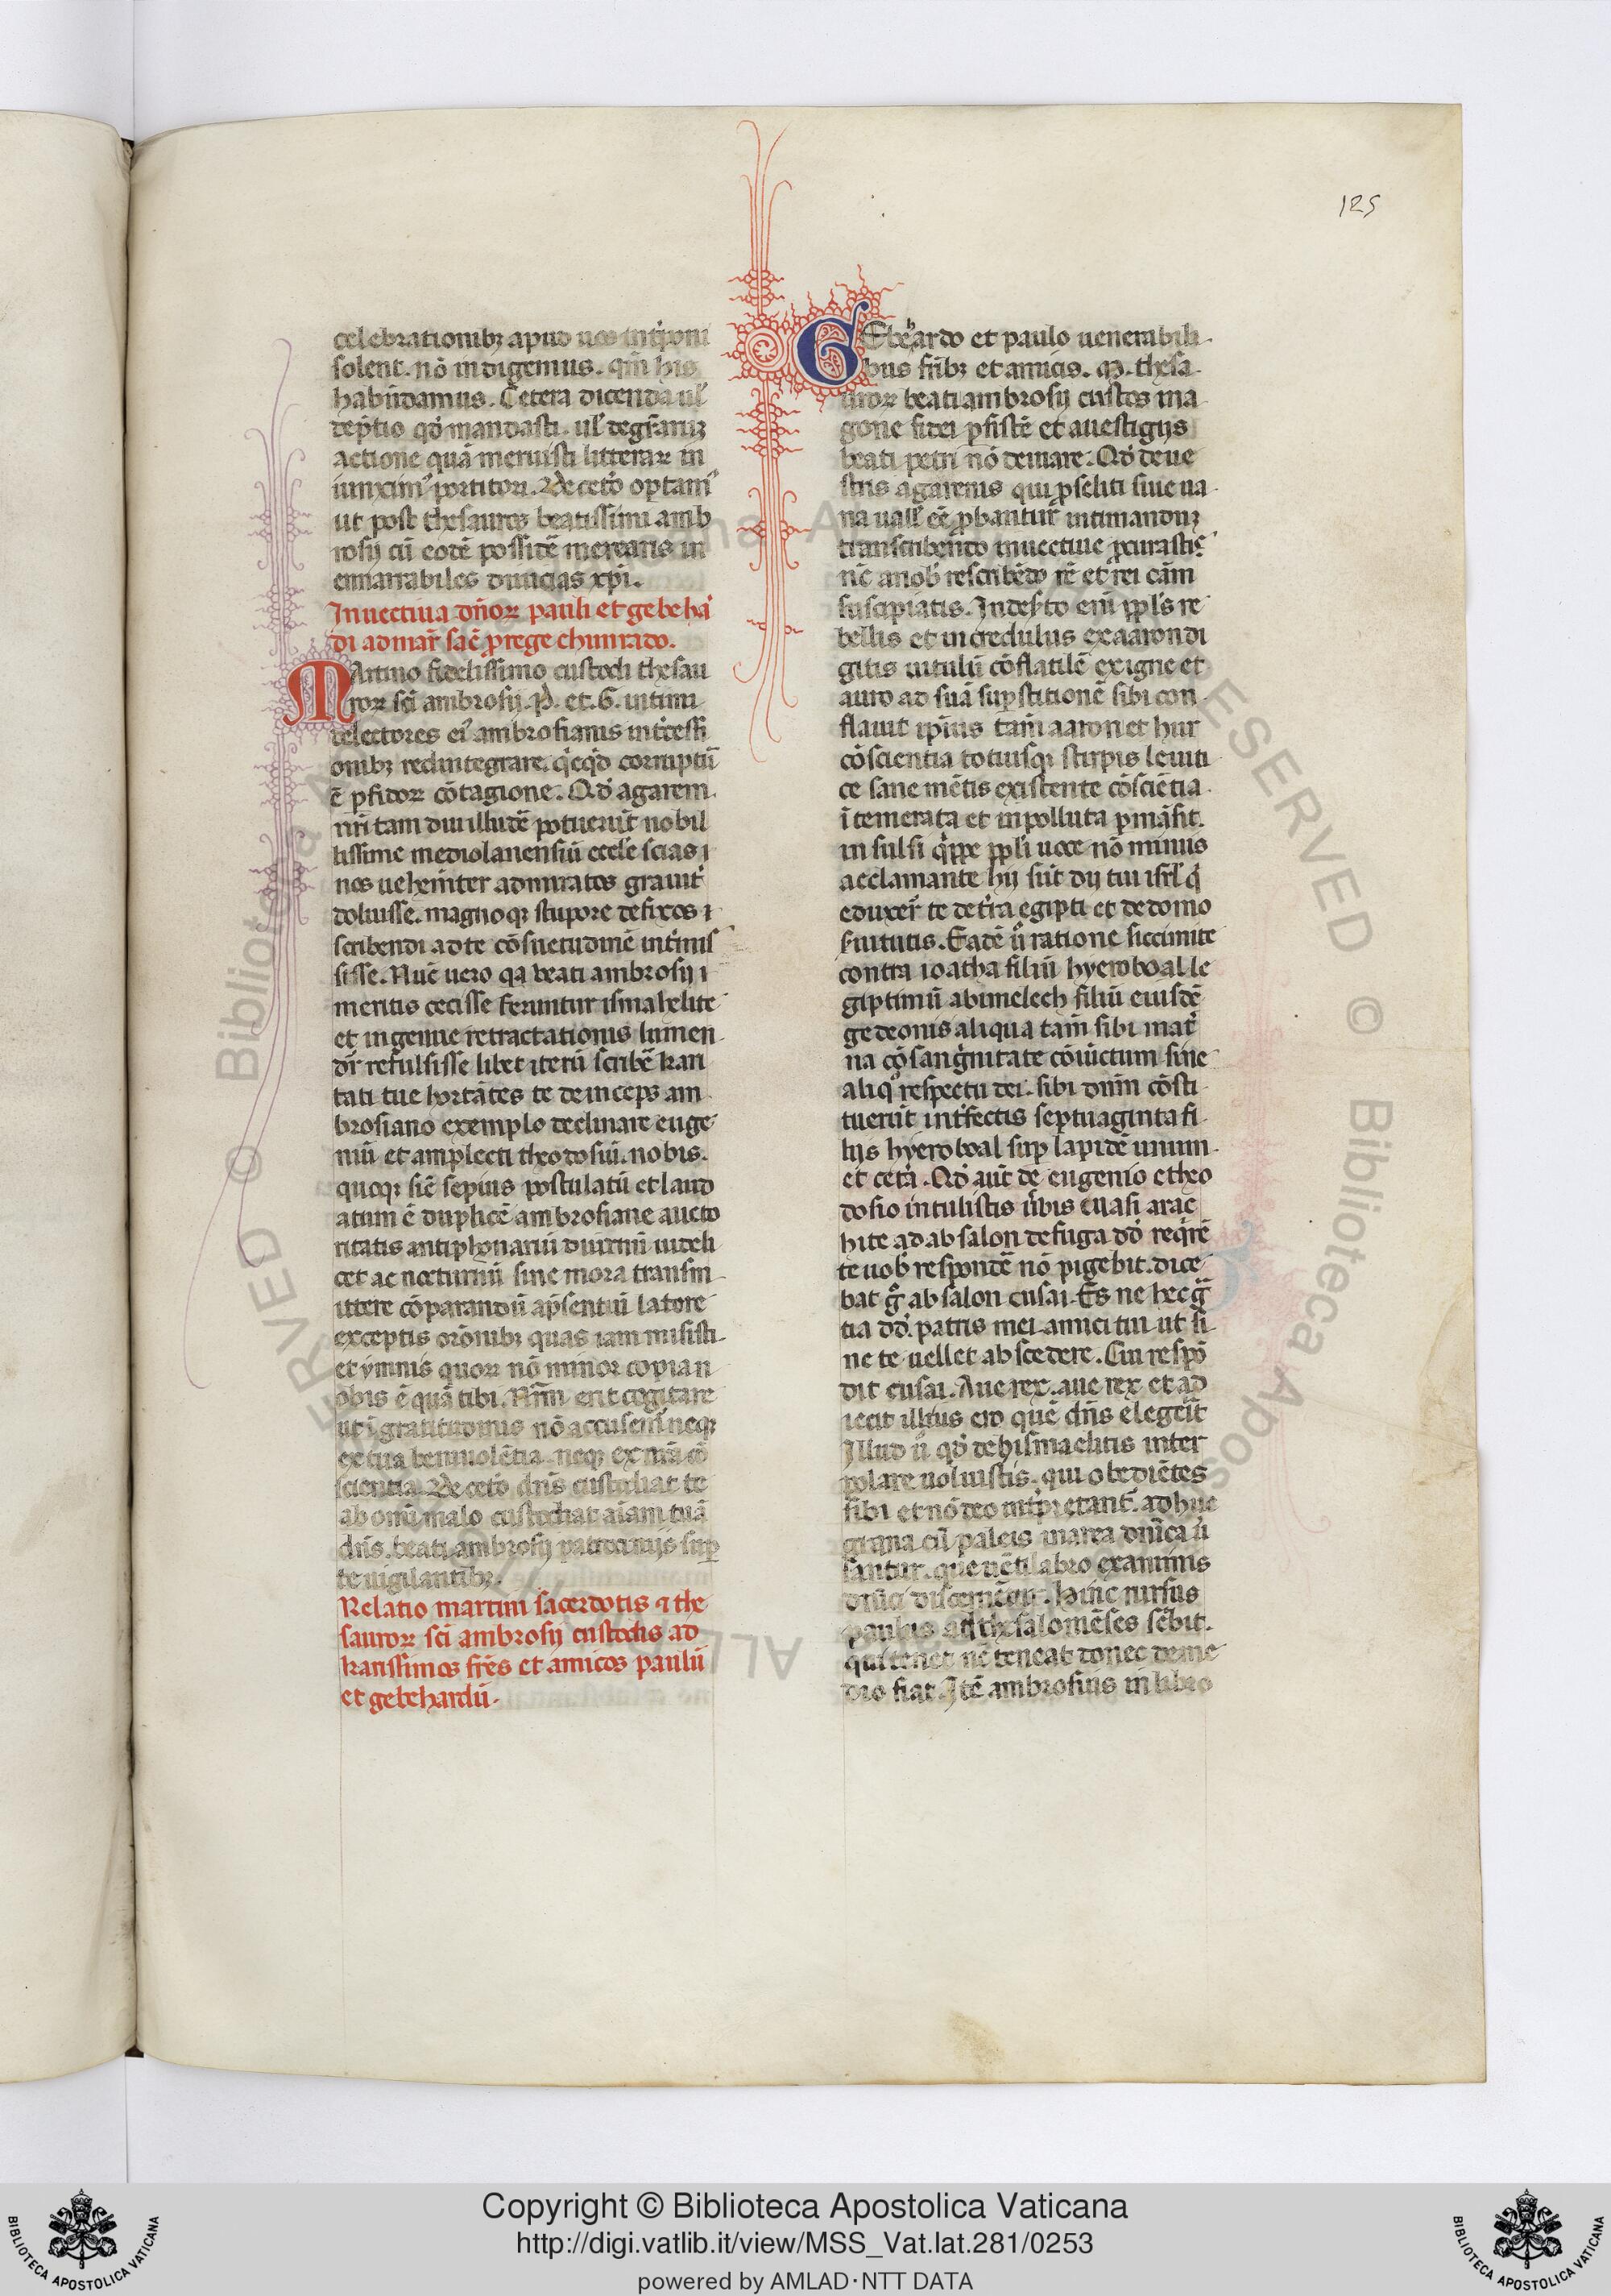 125
celebrationibꝫ apud uos int̾poni
solent. nō indigemus. qm̄ his
habūdamus. Cetera dicenda ul̾
dep̄tio qd̾ mandasti. ul̾ degr̄aruꝫ
actione quā meruisti litteraꝝ in
iunxim᷒ portitori. De cet̾o optam᷒
ut post thesauros beatissimi amb
rosij cū eodē possidē merearis in
enarrabiles diuicias xp̄i.
Inuectiua dn̄oꝝ pauli et gebeha
di ad mar̄ sac̄ ꝓ rege chunrado.
Martino fidelissimo custodi thesau
roꝝ sc̄i ambrosij. P. et. G. intimi
delectores ei᷒ ambrosianis int̾cessi
onibꝫ redintegrare. qͥcqͥd corruptū
ē ꝑfidoꝝ cōtagione. Qd̾ agareni.
uri tam diu illudē potuerūt nobil
lissime mediolanensiū eccl̾e scias ⁊
nos uehem̄ter admiratos grauit̾
doluisse. magnoqꝫ stupore defixos ⁊
scribendi ad te cōsuetudinē int̾mis
sisse. Nūc uero qa beati ambrosij ⁊
meritis cecisse feruntur ismahelite
et ingenue retractationis lumen
dr̄ refulsisse libet iterū scribē kari
tati tue hortātes te deinceps am
brosiano exemplo declinare euge
niū et amplecti theodosiū. nobis.
quoqꝫ sic̄ sepius postulatū et laud
atum ē duplicē ambrosiane aucto
ritatis antiphonariū diurnū uideli
cet ac nocturnū sine mora transm
ittere cōparandū ap̄sentiū latore
exceptis orōnibꝫ quas iam misisti
et ymnis quoꝝ nō minor copia n
obis ē quā tibi. Nr̄m erit cogitare
ut ī gratitudinis nō accusem᷒ neqꝫ
ex tua beniuolētia. neqꝫ ex nr̄a cō
scientia. De cet̾o dn̄s custodiat te
ab omī malo custodiat aīam tuā
dn̄s. beati ambrosij patrocinijs suꝑ
te uigilantibꝫ.
Relatio martini sacerdotis ⁊ the
sauroꝝ sc̄i ambrosij custodis ad
karissimos fr̄es et amicos paulū
et gebehardū.
Gebehardo et paulo uenerabili
bus fr̄ibꝫ et amicis. M. thesa
uroꝝ beati ambrosij custos ma
gone fidei ꝑsistē et a uestigijs
beati petri nō deuiare. Qd̾ de ue
stris agarenis qui ꝓseliti siue ua
na uall̾ eē ꝓbantur intimanduꝫ
transcribendo inuectiue ꝓcurastis
nē a nob̾ rescribēdo rē et rei cām
suscipiatis. In des̾to enī ppl̾s re
bellis et incredulus ex aaron di
gitis uitulū cōflatilē ex igne et
auro ad suā suꝑstitionē sibi con
flauit ipsius tam̄ aaron et hur
cōscientia totiusqꝫ stirpis leuiti
ce sane mētis existente cōsciētia
ītemerata et inpolluta ꝑmāsit.
in sulsi qͥppe ppl̾i uoce nō minus
acclamante hij sūt dij tui isrl̾ qͥ
eduxer̄ te de t̾ra egipti et de domo
s̾uitutis. Eadē u̾ ratione siccimite
contra ioatha filiū hyeroboal le
giptimū abimelech filiū eiusdē
gedeonis aliqua tam̄ sibi mat̾
na cōsangͥnitate cōiūctum sine
aliqͦ respectu dei. sibi dn̄m cōsti
tuerūt int̾fectis septuaginta fi
lijs hyeroboal suꝑ lapidē unum
et cet̾a. Qd̾ aut̄ de eugenio etheo
dosio intulistis u̾bis cusasi arac
hite ad absalon de fuga dd̾ reqͥrē
te uob̾ respondē nō pigebit. dice
bat g̾ absalon cusai. Es ne hec gr̄
tia dd̾. patris mei amici tui ut si
ne te uellet abscedere. Cui respō
dit cusai. Aue rex. aue rex et ad
iecit illius ero quē dn̄s elegerit
Illud u̾ qd̾ de hismaelitis inter
polare uoluistis. qui obediētes
sibi et nō deo int̾pretant̾. adhuc
grana cū paleis in area dn̄ica u̾
santur. que uētilabro examinis
diuī discernētur. Hinc rursus
paulus ad thesalonicēses sc̾bit.
qui tenet nc̄ teneat donec deme
dio fiat. Itē ambrosius in libro
Copyright © Biblioteca Apostolica Vaticana
http://digi.vatlib.it/view/MSS_Vat.lat.281/0253
powered by AMLAD·NTT DATA